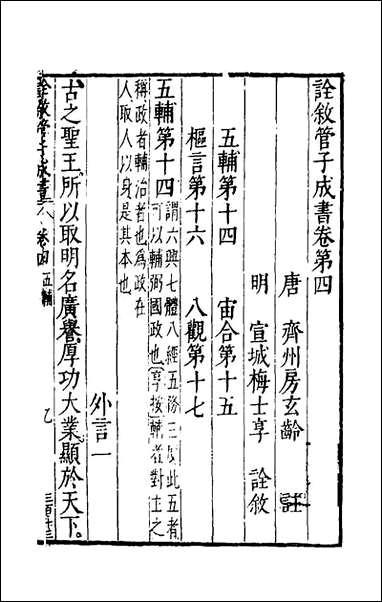 詮敘管子成書卷第四
唐　齊州房玄齡　註
明　宣城梅士享　詮敘
五輔第十四　宙合第十五
樞言第十六　八觀第十七
五輔第十四
謂六興七體八經五務三度此五者
可以輔弼國政也享按輔者對主之
稱政者輔治者也為政在
人取人以身是其本也
外言一
古之聖王所以取明名廣譽厚功大業顯於天下
詮敘管子成書　卷四　五輔